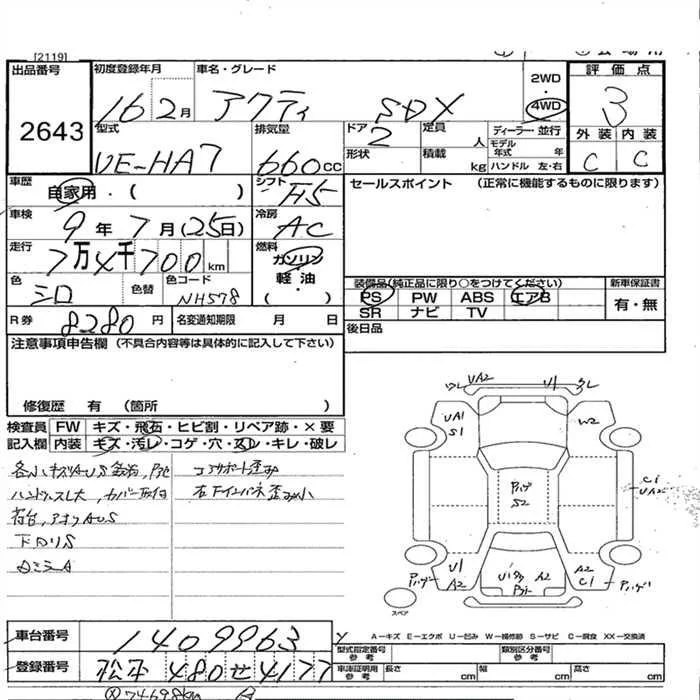 [2119]
出品番号
2643
初度登録年月
16 2月
車名・グレード
アクティ SDX
2WD
4WD
評価点
3
外装 内装
C C
型式
UE-HA7
排気量
660cc
ドア
2
形状
定員 人
積載 kg
ディーラー・並行
モデル年式 年
ハンドル 左・右
車歴
自家用・( )
シフト
F5
セールスポイント (正常に機能するものに限ります)
車検
9年7月(25日)
冷房
AC
走行
7万4千700km
燃料
ガソリン
軽油
( )
色
シロ
色替
色コード
NH578
装備品(純正品に限り○をつけてください)
PS PW ABS エアB
SR ナビ TV
新車保証書
有・無
R券
8280円
名変通知期限 月 日
後日品
注意事項申告欄 (不具合内容等は具体的に記入して下さい)
修復歴 有 (箇所 )
検査員記入欄
FW キズ・飛石・ヒビ割・リペア跡・×要
内装 キズ・汚レ・コゲ・穴・スレ・キレ・破レ
ハンドルスレ大, カバー取付
荷台, アオリAUS
下回リS
コアサポート歪み
UA2
U1
UA1
S1
W2
S2
C1
UA2
U1
A2
A2
A2
C1
スペア
A－キズ E－エクボ U－凹み W－補修跡 S－サビ C－腐食 XX－交換済
車台番号
1409963
登録番号
松本 480 せ 4177
型式指定番号 参考
類別区分番号 参考
車庫証明用 参考
長さ cm
幅 cm
高さ cm
74698km